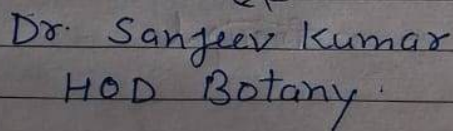 Dr. Sanjeev Kumar
HOD Botany.